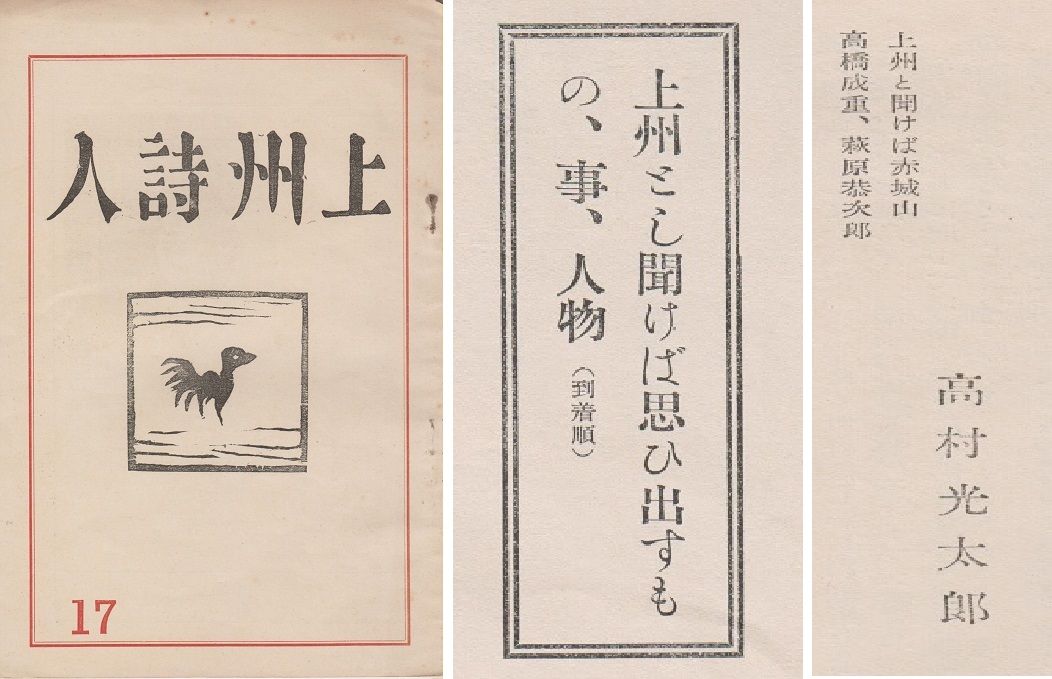 上州詩人
17
上州とし聞けば思ひ出すも
の、事、人物(到着順)
高村光太郎
上州と聞けば赤城山
高橋成重、萩原恭次郎